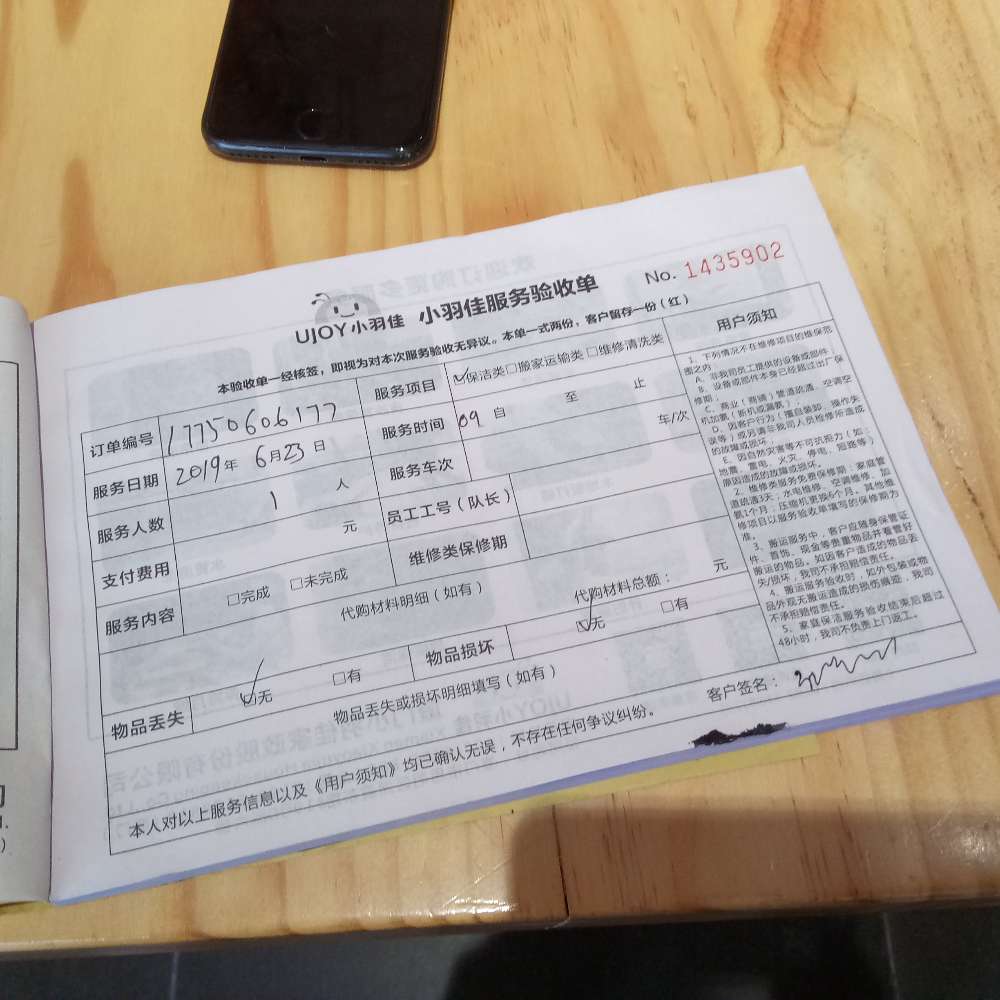 No. 1435902
UJOY小羽佳 小羽佳服务验收单
本验收单一经核签，即视为对本次服务验收无异议。本单一式两份，客户留存一份（红）
订单编号 17750606177 服务项目 ☑保洁类□搬家运输类 □维修清洗类
服务日期 2019年 6月23日 服务时间 09 自 至 止
服务人数 1 人 服务车次 车/次
支付费用 元 员工工号（队长）
服务内容 □完成 □未完成 维修类保修期
代购材料明细（如有） 代购材料总额： 元
物品丢失 ☑无 □有 物品损坏 ☑无 □有
物品丢失或损坏明细填写（如有）
本人对以上服务信息以及《用户须知》均已确认无误，不存在任何争议纠纷。 客户签名：
用户须知
1、下列情况不在维修项目的维保范
围之内
A、非我司员工提供的设备或部件；
B、设备或部件本身已经超过出厂保
修期；
C、商业（商铺）管道疏通、空调空
机加氨（拆机或漏氨）；
D、因客户行为（擅自装卸、操作失
误等）或另请非我司人员检修所造成
的故障或损坏；
E、因自然灾害等不可抗拒力（如：
地震、雷电、火灾、停电、短路等）
原因造成的故障或损坏。
2、维修类服务免费保修期：家庭管
道疏通3天；水电维修、空调维修、加
氨1个月；压缩机更换6个月。其他维
修项目以服务验收单填写的保修期为
准。
3、搬运服务中，客户应随身保管证
件、首饰、现金等贵重物品并看管好
搬运的物品。如因客户造成的物品丢
失/损坏，我司不承担赔偿责任。
4、搬运服务验收时，如外包装或物
品外观无搬运造成的损伤痕迹，我司
不承担赔偿责任。
5、家庭保洁服务验收结束后超过
48小时，我司不负责上门返工。